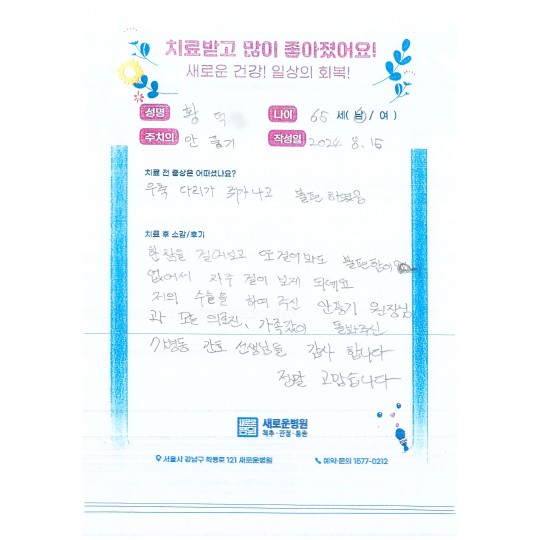 치료받고 많이 좋아졌어요!
새로운 건강! 일상의 회복!
성명 황 나이 65 세( 남 / 여 )
주치의 안풍기 작성일 2024 8. 15
치료 전 증상은 어떠셨나요?
우측 다리가 쥐가나고 불편하였음
치료 후 소감/후기
한참을 걸어보고 또 걸어봐도 불편함이
없어서 자주 걸어 보게 되네요
저의 수술을 하여 주신 안풍기 원장님
과 모든 의료진, 가족같이 돌봐주신
7병동 간호 선생님들 감사 합니다
정말 고맙습니다
새로운병원 새로운병원
척추·관절·통증
서울시 강남구 학동로 121 새로운병원 예약·문의 1577-0212